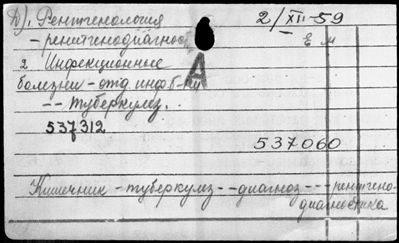 А), Рентгенология 2/XII-59
- рентгенодиагнос Е м
2. Инфекционные
болезни - отд. инф. б-ни А
-- туберкулез.
537312
537060
Кишечник - туберкулз -- диагноз --- рентгено-
диагностика